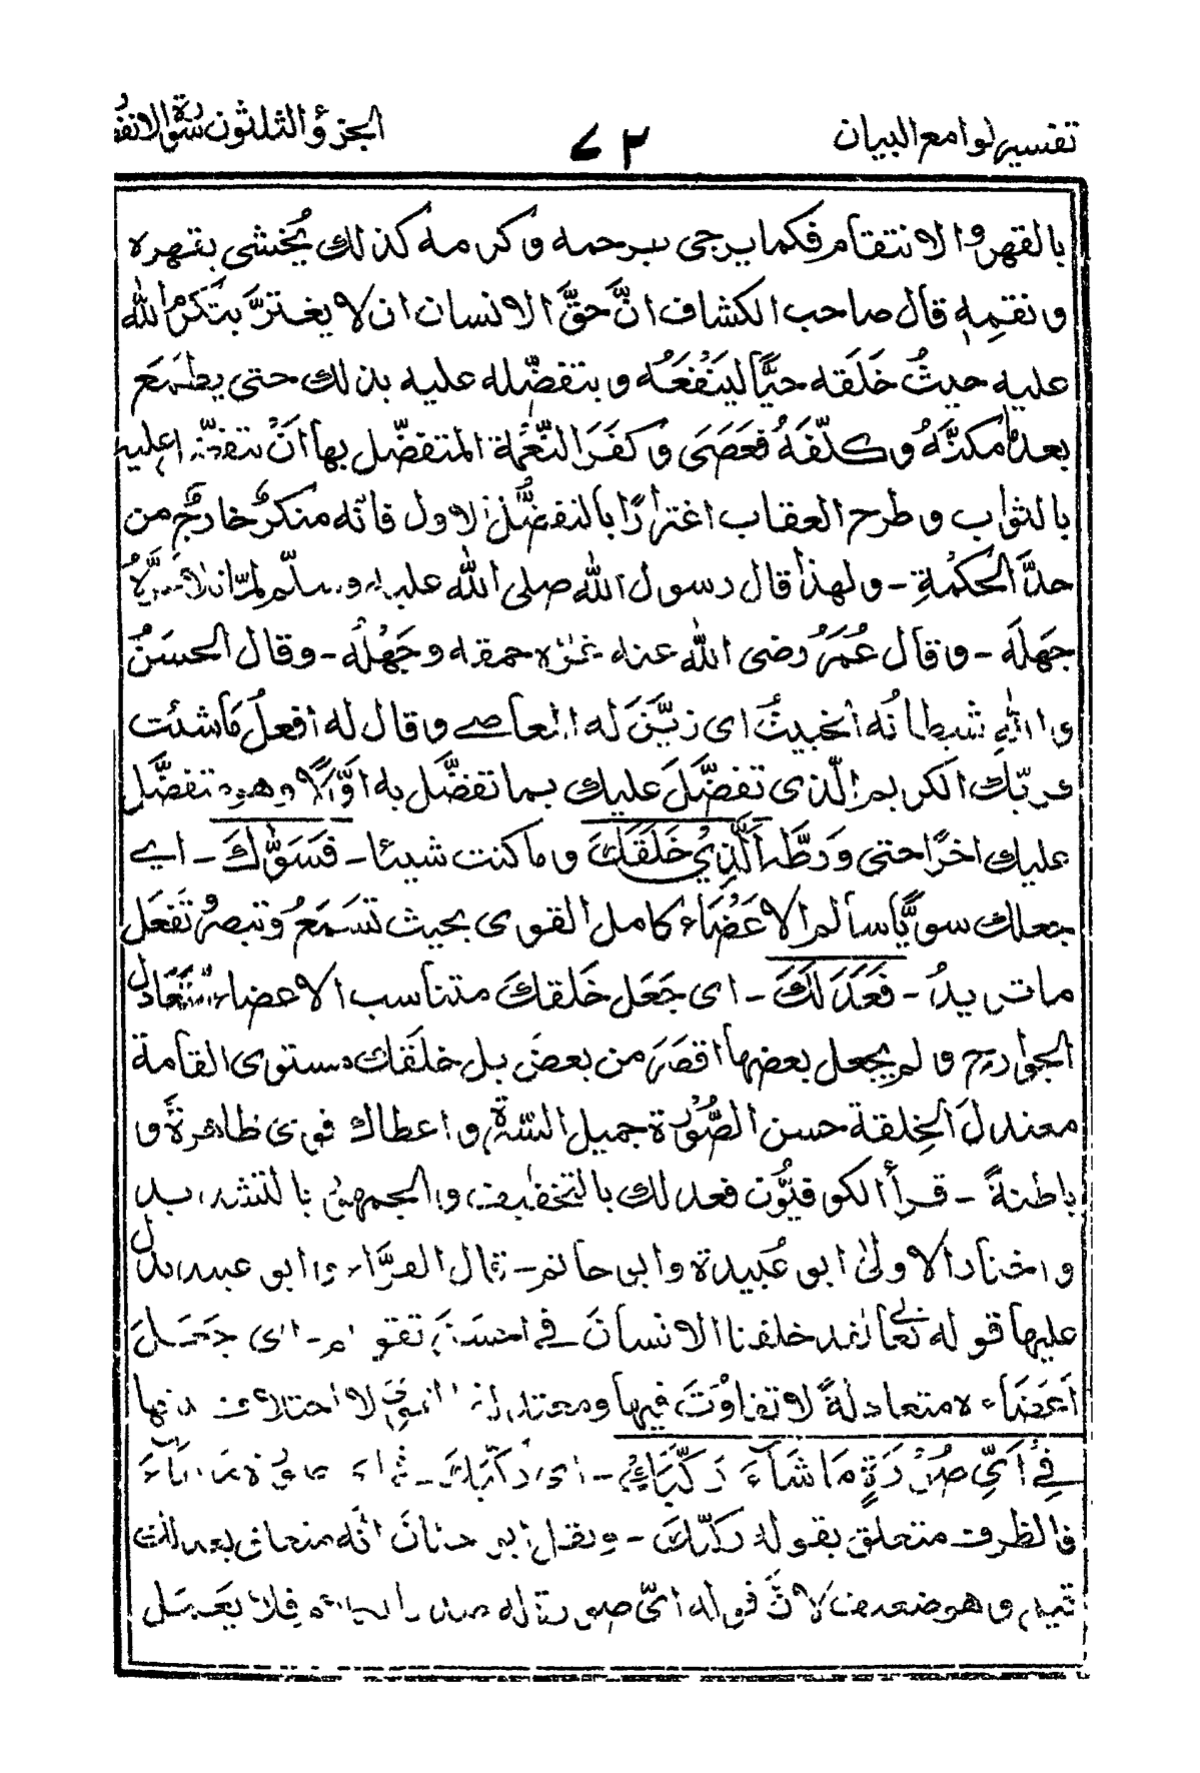 تفسير لوامع البيان
٧٢
الجزؤ الثلثون سورة الانفط
بالقهر والانتقام فكما يرجى برحمه وكرمه كذلك يُخشى بقهره
ونقمِهٖ قال صاحب الكشاف انَّ حقَّ الانسان ان لا يغترَّ بتَكرم الله
عليه حيثُ خَلَقه حيًّا ليَنْفَعَهُ وبتفضّله عليه بذلك حتى يطمَعَ
بعدما مكنَّهُ وكلّفَهُ فعَصَى وكفَرَ النِّعْمة المتفضّل بها انْ يتفضّل عليه
بالثواب وطرح العقاب اغترارًا بالتفضُّل الاول فانّه منكرٌ خارجٌ من
حدِّ الحكمْةِ - ولهذا قال رسول الله صلى الله عليه وسلّم لمّا تلاها غَرَّهُ
جَهلُه - وقال عُمَرُ رضى الله عنه غرّه حمقه وجَهْلُه - وقال الحسَنُ
والله شيطانُه الخبيثُ اى زيَّنَ له المعاصے وقال له افعلْ ما شئت
فربّك الكريم الّذى تفضَّلَ عليك بما تفضَّل به اوَّلًا وهو متفضّل
عليك اخرًا حتى ورّطَه اَلَّذِيْ خَلَقَكَ وما كنت شيئا - فَسَوّٰكَ - اے
جعلك سويًّا سالم الاعْضَاء كامل القوى بحيث تَسمَعُ وتبصرُ تفعَل
ما تريدُ - فَعَدَلَكَ - اى جَعَل خَلقكَ متناسب الاعضاء متعَادل
الجوارح ولم يجعل بعضها اقصَرَ من بعضٍ بل خلَقك مستوى القامة
معتدلَ الخِلقة حسن الصُّوْرة جميل السّنّة واعطاك قوى ظاهرةً و
باطنةً - قرأ الكوفيُّون فعدلك بالتخفيف والجمهور بالتشديد
واختار الاولىٰ ابو عُبيدة وابو حاتم - قال الفرَّاء وابو عبيد يدل
عليها قوله تعالٰے لقد خلقنا الانسانَ فے احسَنِ تقويم - اى جَعَلَ
اَعضَاءه متعادلةً لا تفاوُتَ فيها ومعتدلة لا اختلاف فيها
فِيْ اَيِّ صُوْرَةٍ مَا شَاءَ رَكَّبَكَ - اى ركّبَكَ
فالظرف متعلق بقوله ركّبك - ونقل ابو حيان انّه متعلق بعدلك
وهو ضعيف لانَّ قوله اىّ صورة له صدر فلا يعمَل